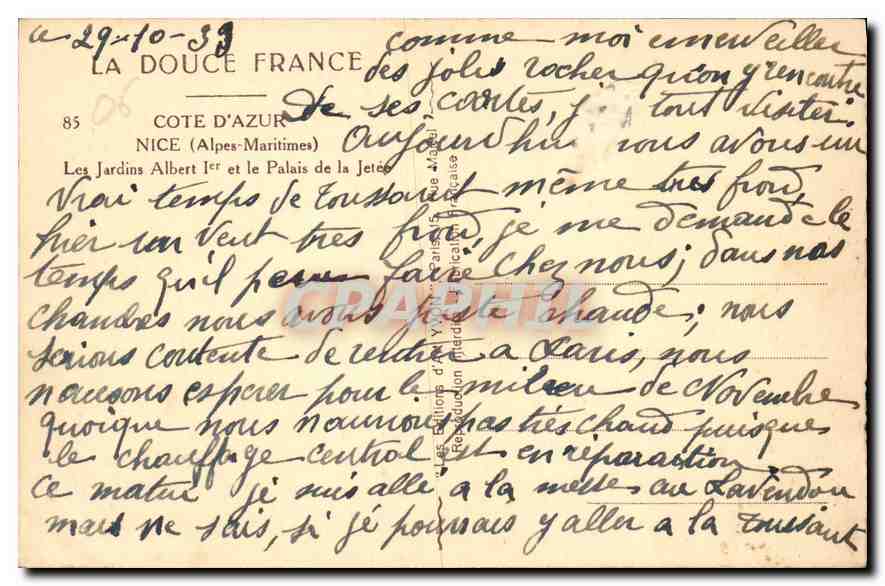 ce 29-10-33
LA DOUCE FRANCE
85 COTE D'AZUR
NICE (Alpes-Maritimes)
Les Jardins Albert Ier et le Palais de la Jetée
comme moi emerveiller
des jolis rocher qu'on y rencontre
de ses, cortes, j' tout visiter.
Aujourd'hui nous avons un
Vrai temps de Toussaint même très froid,
hier un vent très froid, je me demande le
temps qu'il faire chez nous; dans nos
chambres nous avons juste chaude; nous
serions contente de rentrer a Paris, nous
naucons esperer pour le milieu de Novembre
quoique nous naurions pas très chaud puisque
le chauffage central est en réparaction
ce matin je suis allé a la messe au Lavendou
mais ne sais, si je pourrais y aller a la Toussaint
"Les Editions d'Art YVON" Paris, 15, Rue Martel
Reproduction interdite Fabrication Française
CPAPHIL